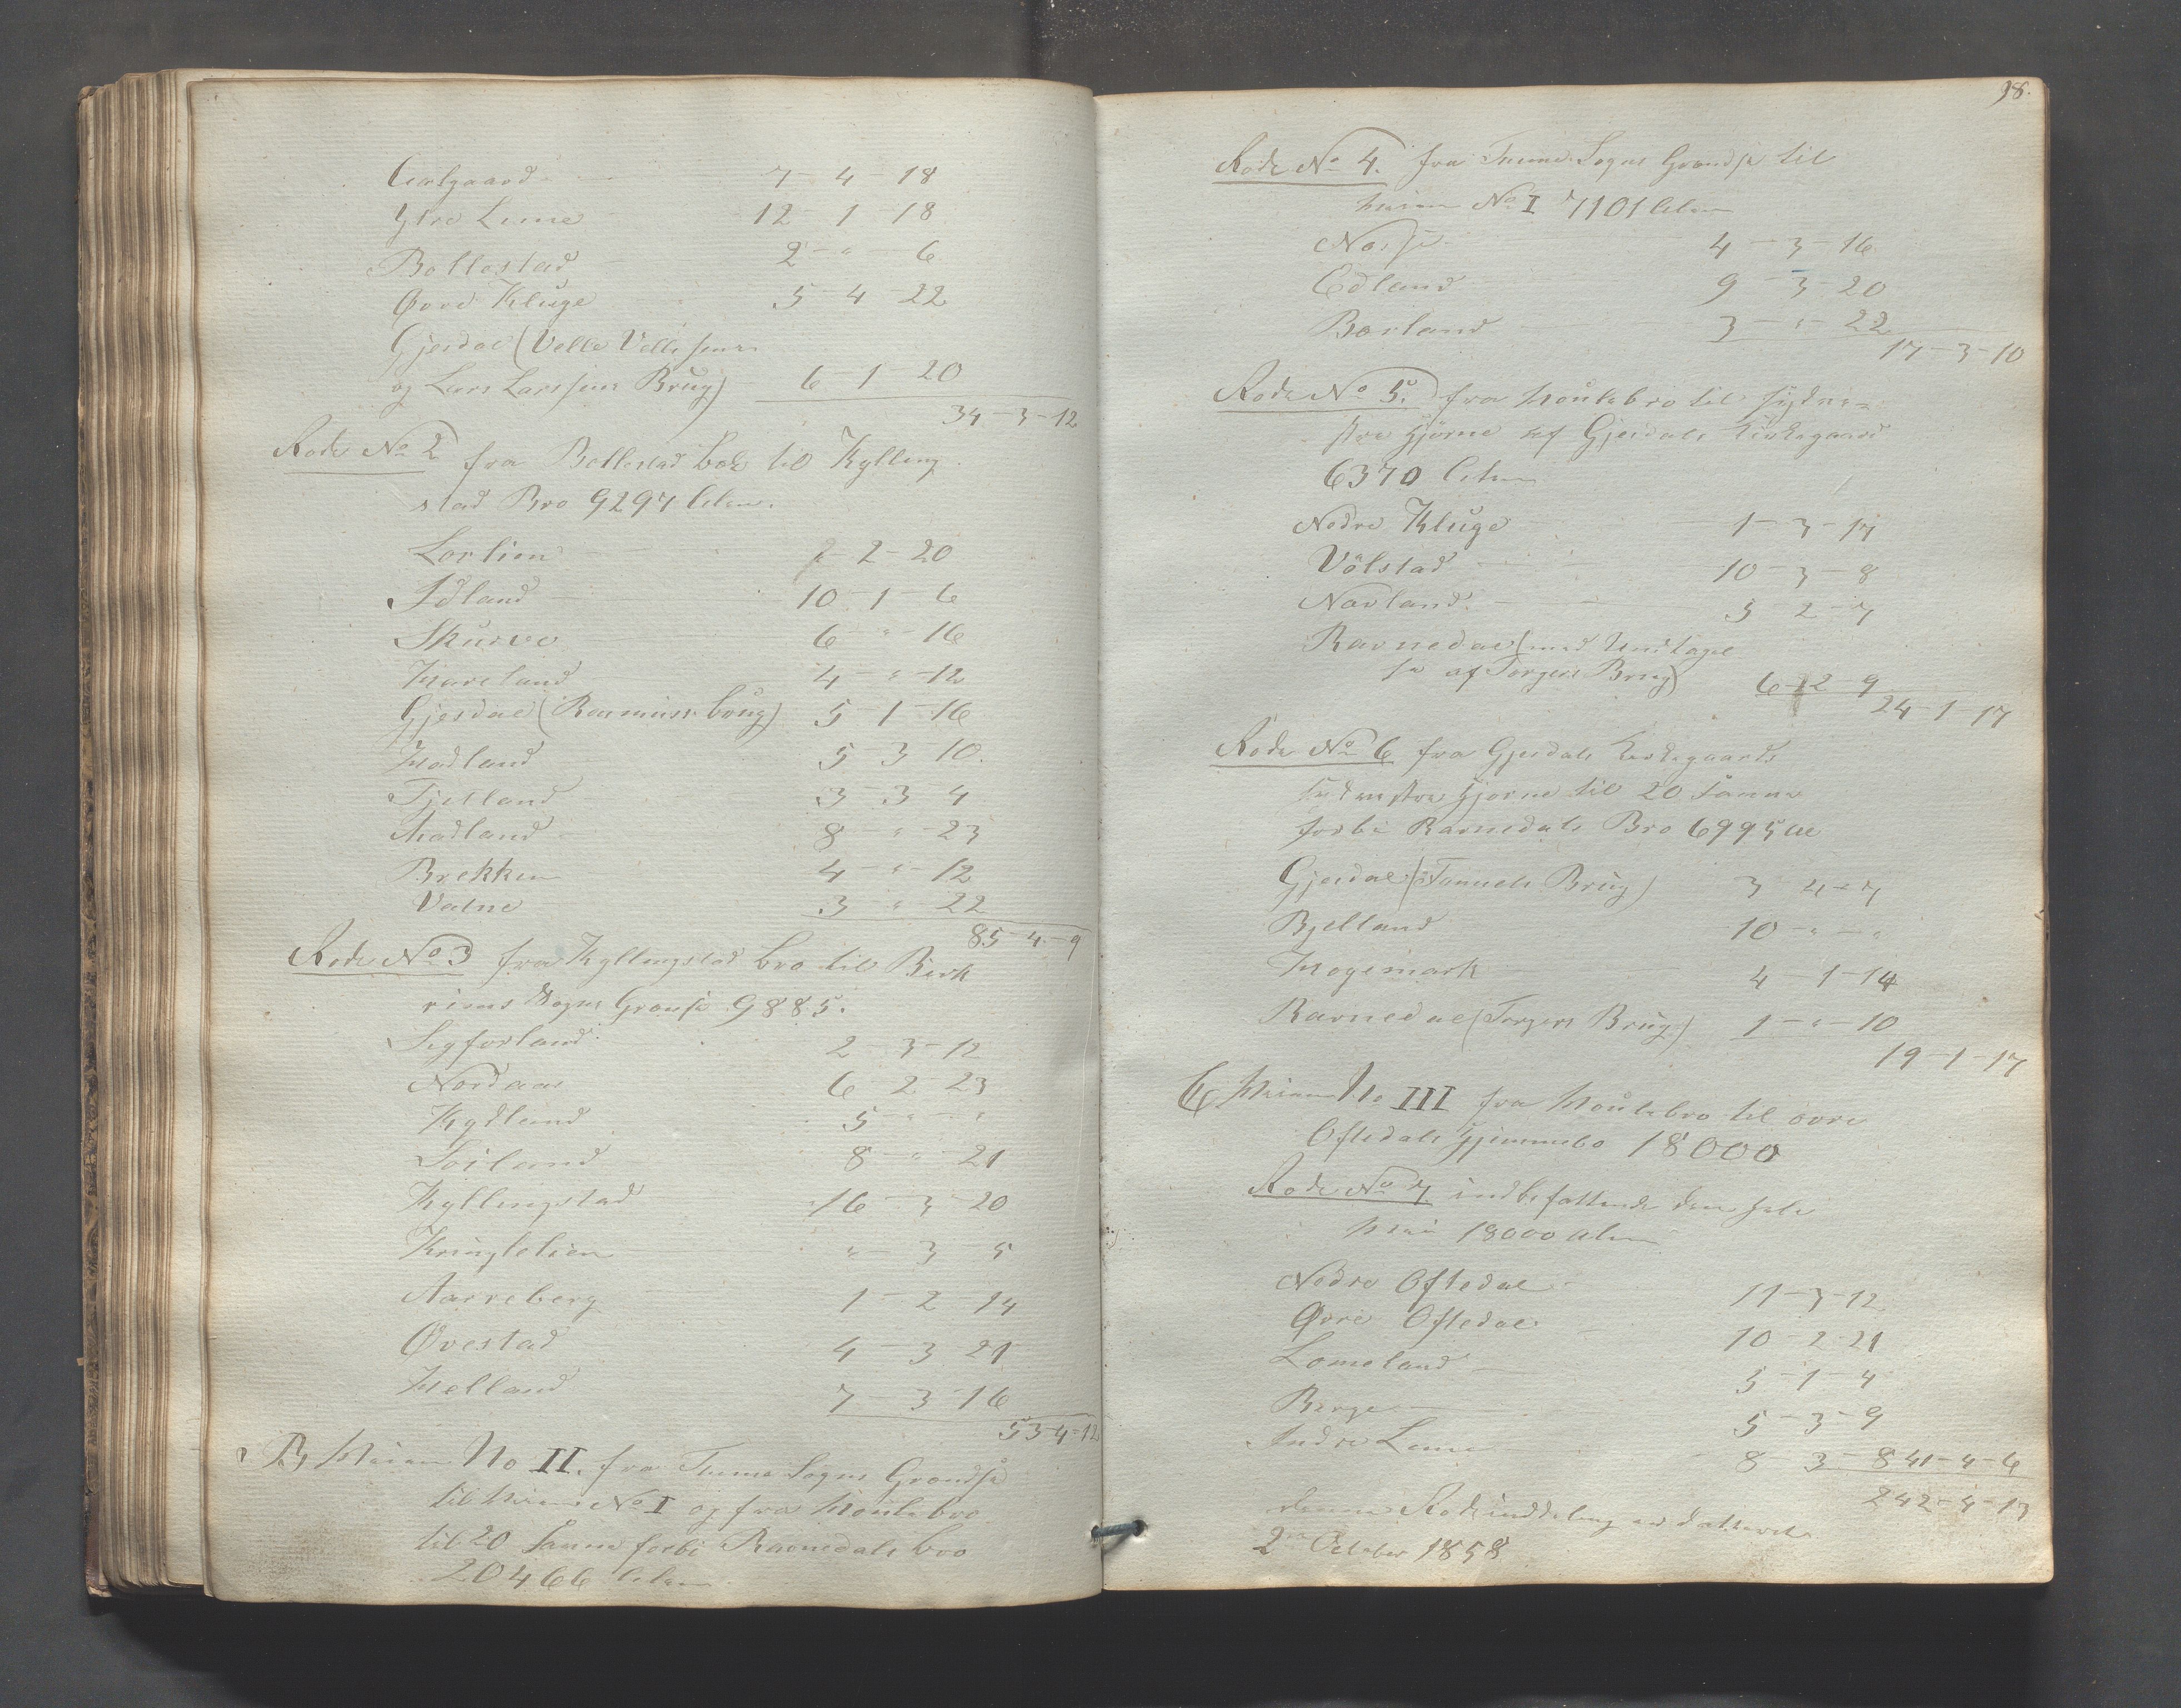 Aalgaard 7 - 4 - 18
Ytre Lime 12 - 1 - 18
Bollestad 2 - " - 6
Øvre Kluge 5 - 4 - 22
Gjesdal (Velle Vellesens
og Lars Larssens Brug) 6 - 1 - 20
34 - 3 - 12
Rode No 2 fra Bollestad Bæk til Kylling
stad Bro 9297 Alen.
Lorlien 2 - 20
Idland 10 - 1 - 6
Skurve 6 - " - 16
Haveland 4 - " - 12
Gjesdal (Rasmus's Brug) 5 - 1 - 16
Hadland 5 - 3 - 10.
Tjesland 3 - 3 - 4
Madland 8 - " - 23
Brekken 4 - " - 12
Valne 3 " 22
85 - 4 - 9
Rode No 3 fra Kyllingstad Bro til Birk
rims Sogns Grændse 9885.
Sigforland 2 - 3 - 12
Nordaas 6 2 23
Kydland 5 - " - "
Soiland 8 - " - 21
Kyllingstad 16 - 3 - 20
Kringlelien " - 3 5
Aarreberg 1 - 2 - 14
Øvestad 4 - 3 21
Helland 7 3 - 16
53 - 4 - 12
B, Veien No II. fra Time Sogns Grændse
til Veien No I og fra Houlebro
til 20 Favne forbi Ravnedals Bro
20466 Alen.
98.
Rode No 4. fra Time Sogns Grændse til
Veien No I 7101 Alen
Nosse 4 - 3 - 16
Edland 9 - 3 - 20
Borland 3 - " - 22
17 - 3 - 10
Rode No 5. fra Houlebro til sydve-
stre Hjørne af Gjesdals Kirkegaard
6370 Alen
Nedre Kluge 1 - 3 - 17
Völstad 10 - 3 - 8
Navland. 5 2 - 7
Ravnedal (med Undtagel
se af Torgers Brug) 6 - 2 - 9
24 - 1 - 17
Rode No 6 fra Gjesdals Kirkegaards
sydvestre Hjørne til 20 Favne
forbi Ravnedals Bro 6995 Al
Gjesdal (Samuels Brug) 3 4 - 7
Bjelland 10 - " - "
Hogemark 4 - 1 - 14
Ravnedal (Torgers Brug) 1 - " - 10
19 - 1 - 17
C, Veien No III fra Houlebro til øvre
Oftedals Hjemmebø 18000
Rode No 7. indbefattende den hele
Vei 18000 Alen
Nedre Oftedal 11 - 3 - 12
Øvre Oftedal 10 - 2 - 21
Lomeland 5 - 1 - 4
Berge 5 - 3 - 9
Indre Lime 8 - 3 - 8 41 - 4 - 6
242 - 4 - 13
denne Rodeinddeling er dateret
2 October 1858